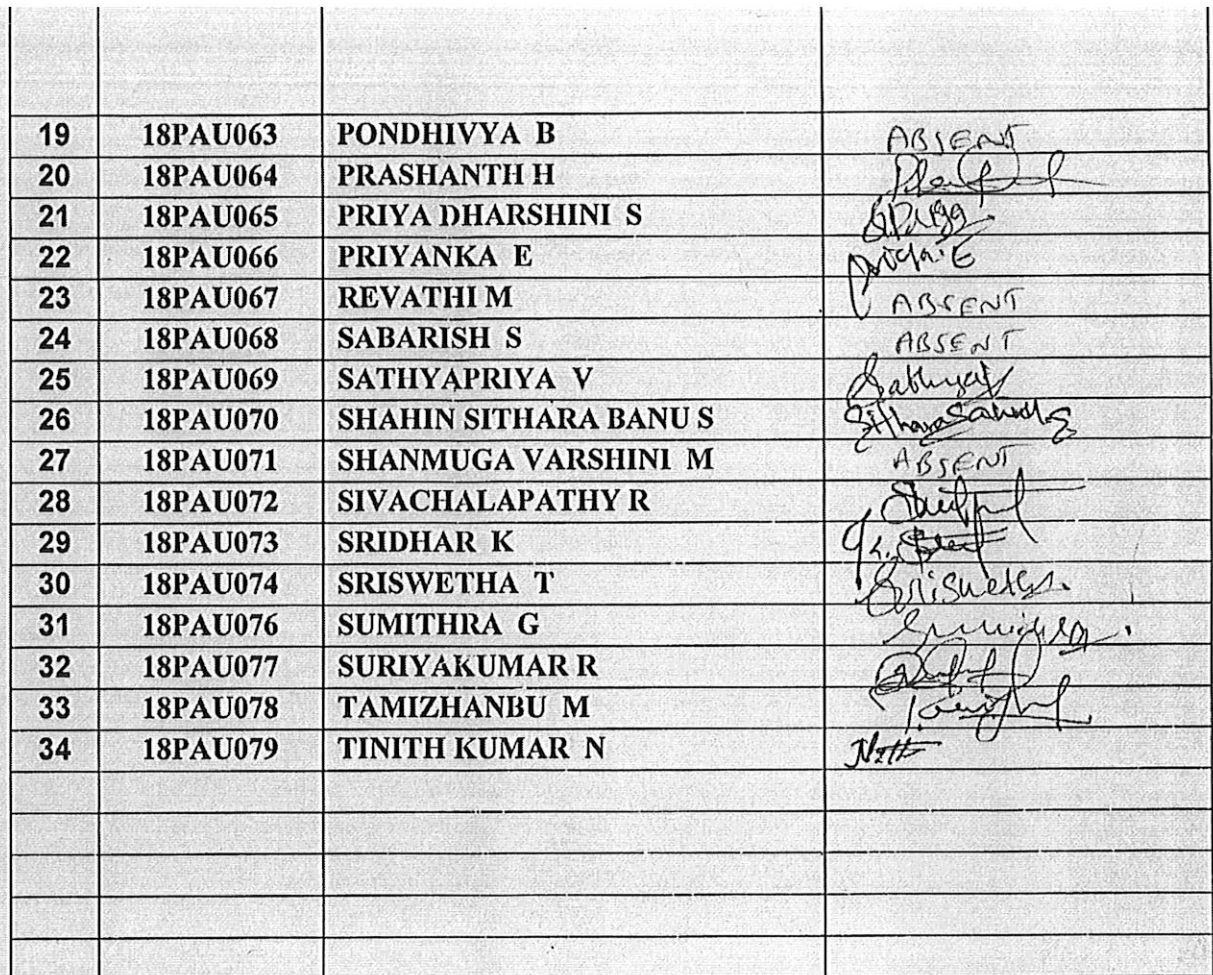 19 18PAU063 PONDHIVYA B ABSENT
20 18PAU064 PRASHANTH H
21 18PAU065 PRIYA DHARSHINI S
22 18PAU066 PRIYANKA E
23 18PAU067 REVATHI M ABSENT
24 18PAU068 SABARISH S ABSENT
25 18PAU069 SATHYAPRIYA V
26 18PAU070 SHAHIN SITHARA BANU S
27 18PAU071 SHANMUGA VARSHINI M ABSENT
28 18PAU072 SIVACHALAPATHY R
29 18PAU073 SRIDHAR K
30 18PAU074 SRISWETHA T Sriswetha
31 18PAU076 SUMITHRA G
32 18PAU077 SURIYAKUMAR R
33 18PAU078 TAMIZHANBU M
34 18PAU079 TINITH KUMAR N